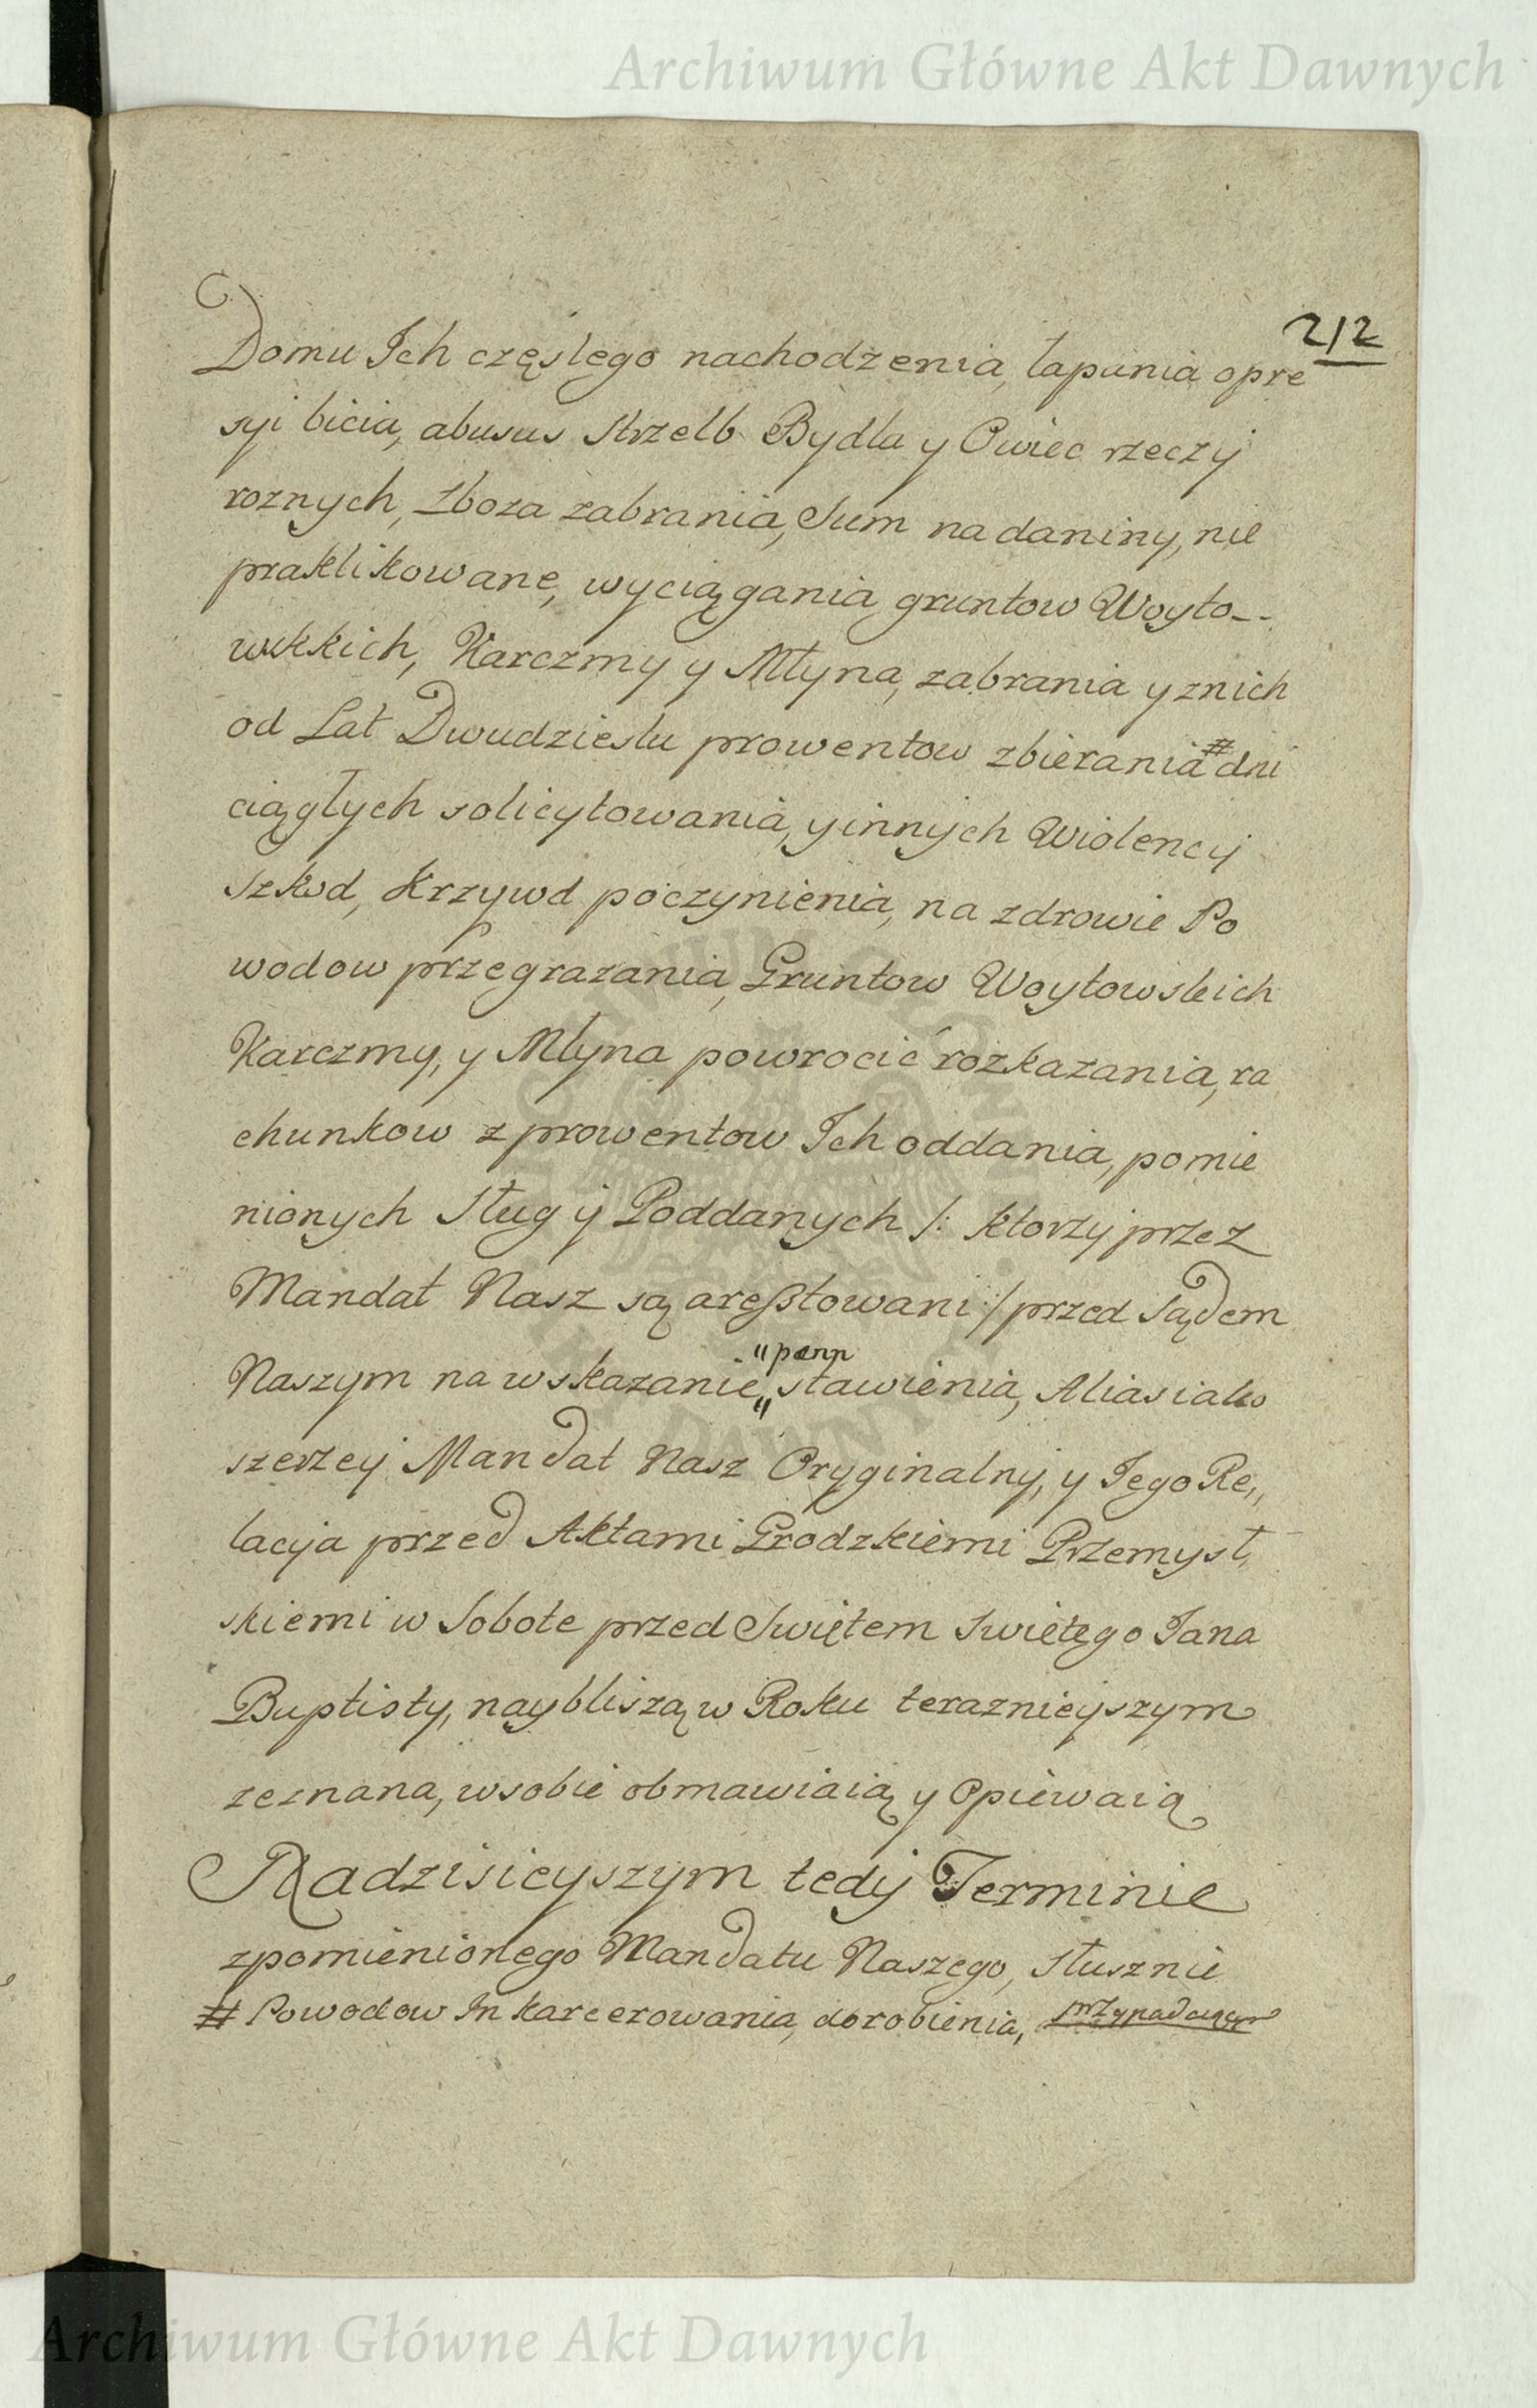 Archiwum Główne Akt Dawnych
212
Domu Ich częstego nachodzenia, łapania opre
syi bicia, abusus Strzelb Bydła y Owiec rzeczy
roznych, zboza zabrania, Sum na daniny, nie
praktikowane, wyciągania gruntow Woyto--
wskich, Karczmy y Młyna, zabrania y znich
od Lat Dwudziestu prowentow zbierania # dni
ciągłych solicytowania, y innych Wiolencij
Szkod, Krzywd poczynienia, na zdrowie Po
wodow przegrazania, Gruntow Woytowskich
Karczmy, y Młyna powrocić rozkazania, ra
chunkow z prowentow Ich oddania, pomie
nionych Sług ij Poddanych /: ktorzy przez
Mandat Nasz są aresztowani :/ przed Sądem
"pænn
Naszym na wskazanie " stawienia, Alias iako
szerzey Mandat Nasz Oryginalny, y Jego Re„
lacija przed Aktami Grodzkiemi Przemysł,
skiemi w Sobote przed Swiętem Swiętego Jana
Baptisty, naybliszą w Roku teraznieyszym
zeznana, wsobie obmawiaią y Opiewaią
Nadzisieyszym tedy Terminie
zpomienionego Mandatu Naszego, słusznie
# Powodow Inkarcerowania, dorobienia, przypadaiącym
Archiwum Główne Akt Dawnych